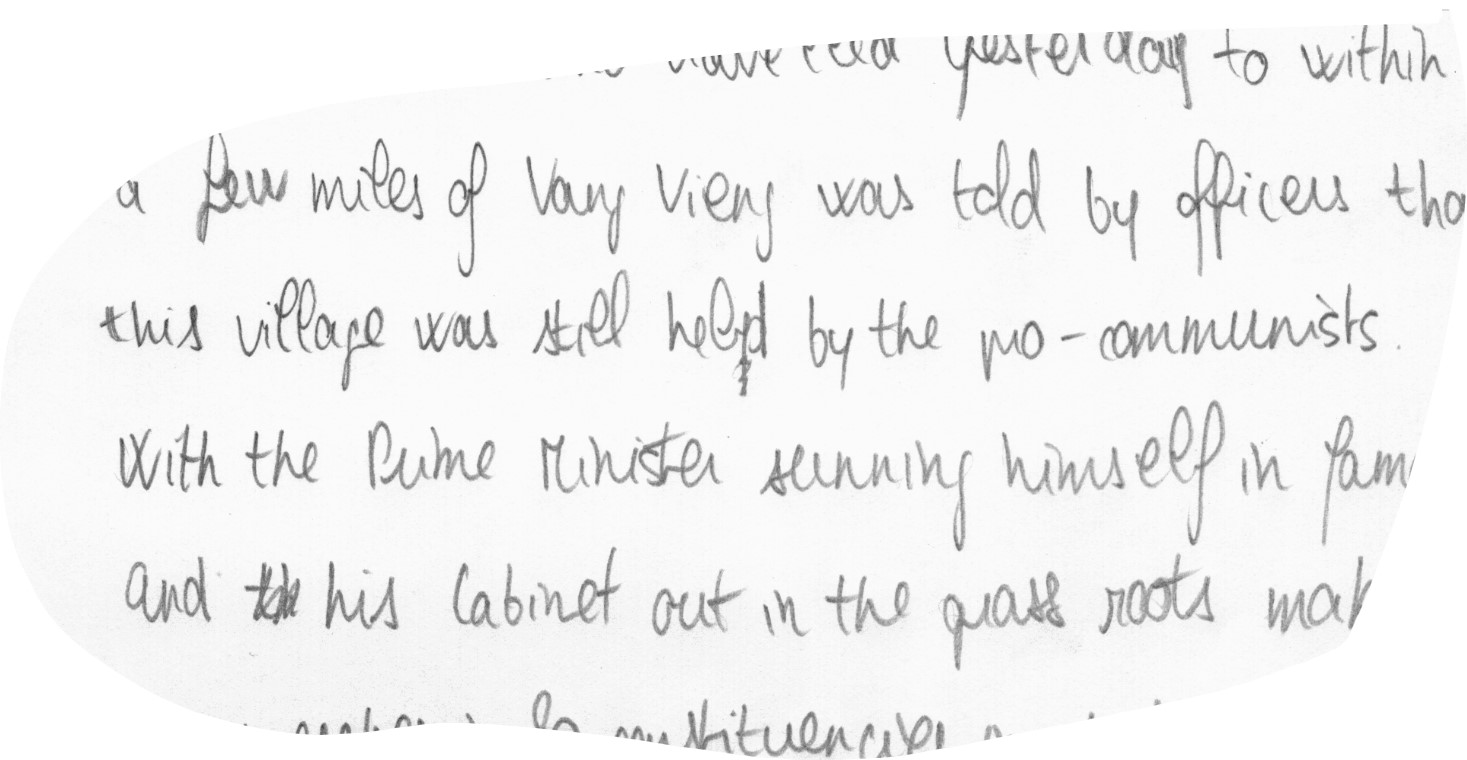 yesterday to within
a few miles of Vang Vieng was told by officers
this village was still held by the pro-communists.
With the Prime Minister sunning himself in
and his Cabinet out in the grass roots
constituencies